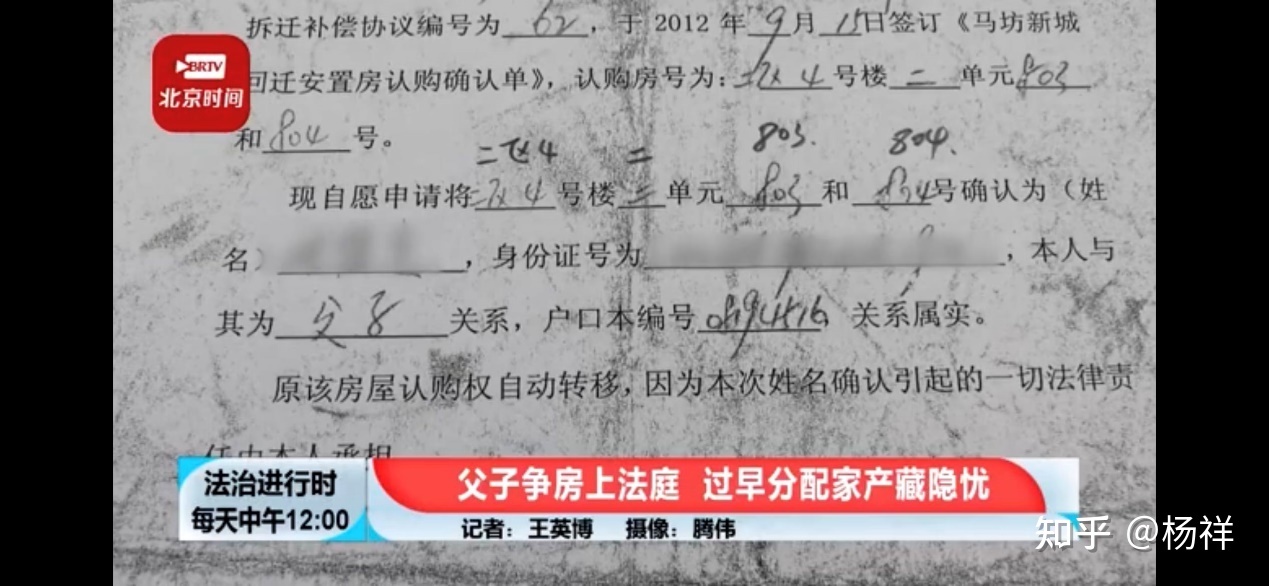 拆迁补偿协议编号为 62 ,于 2012 年 9 月 15 日签订《马坊新城
BRTV
北京时间
回迁安置房认购确认单》,认购房号为:二区4 号楼 二 单元 803
和 804 号。
二区4 二 803. 804.
现自愿申请将 二区4 号楼 二 单元 803 和 804 号确认为(姓
名),身份证号为,本人与
其为 父子 关系,户口本编号,关系属实。
原该房屋认购权自动转移,因为本次姓名确认引起的一切法律责
任由本人承担
法治进行时
每天中午12:00
父子争房上法庭 过早分配家产藏隐忧
记者:王英博 摄像:腾伟
知乎 @杨祥